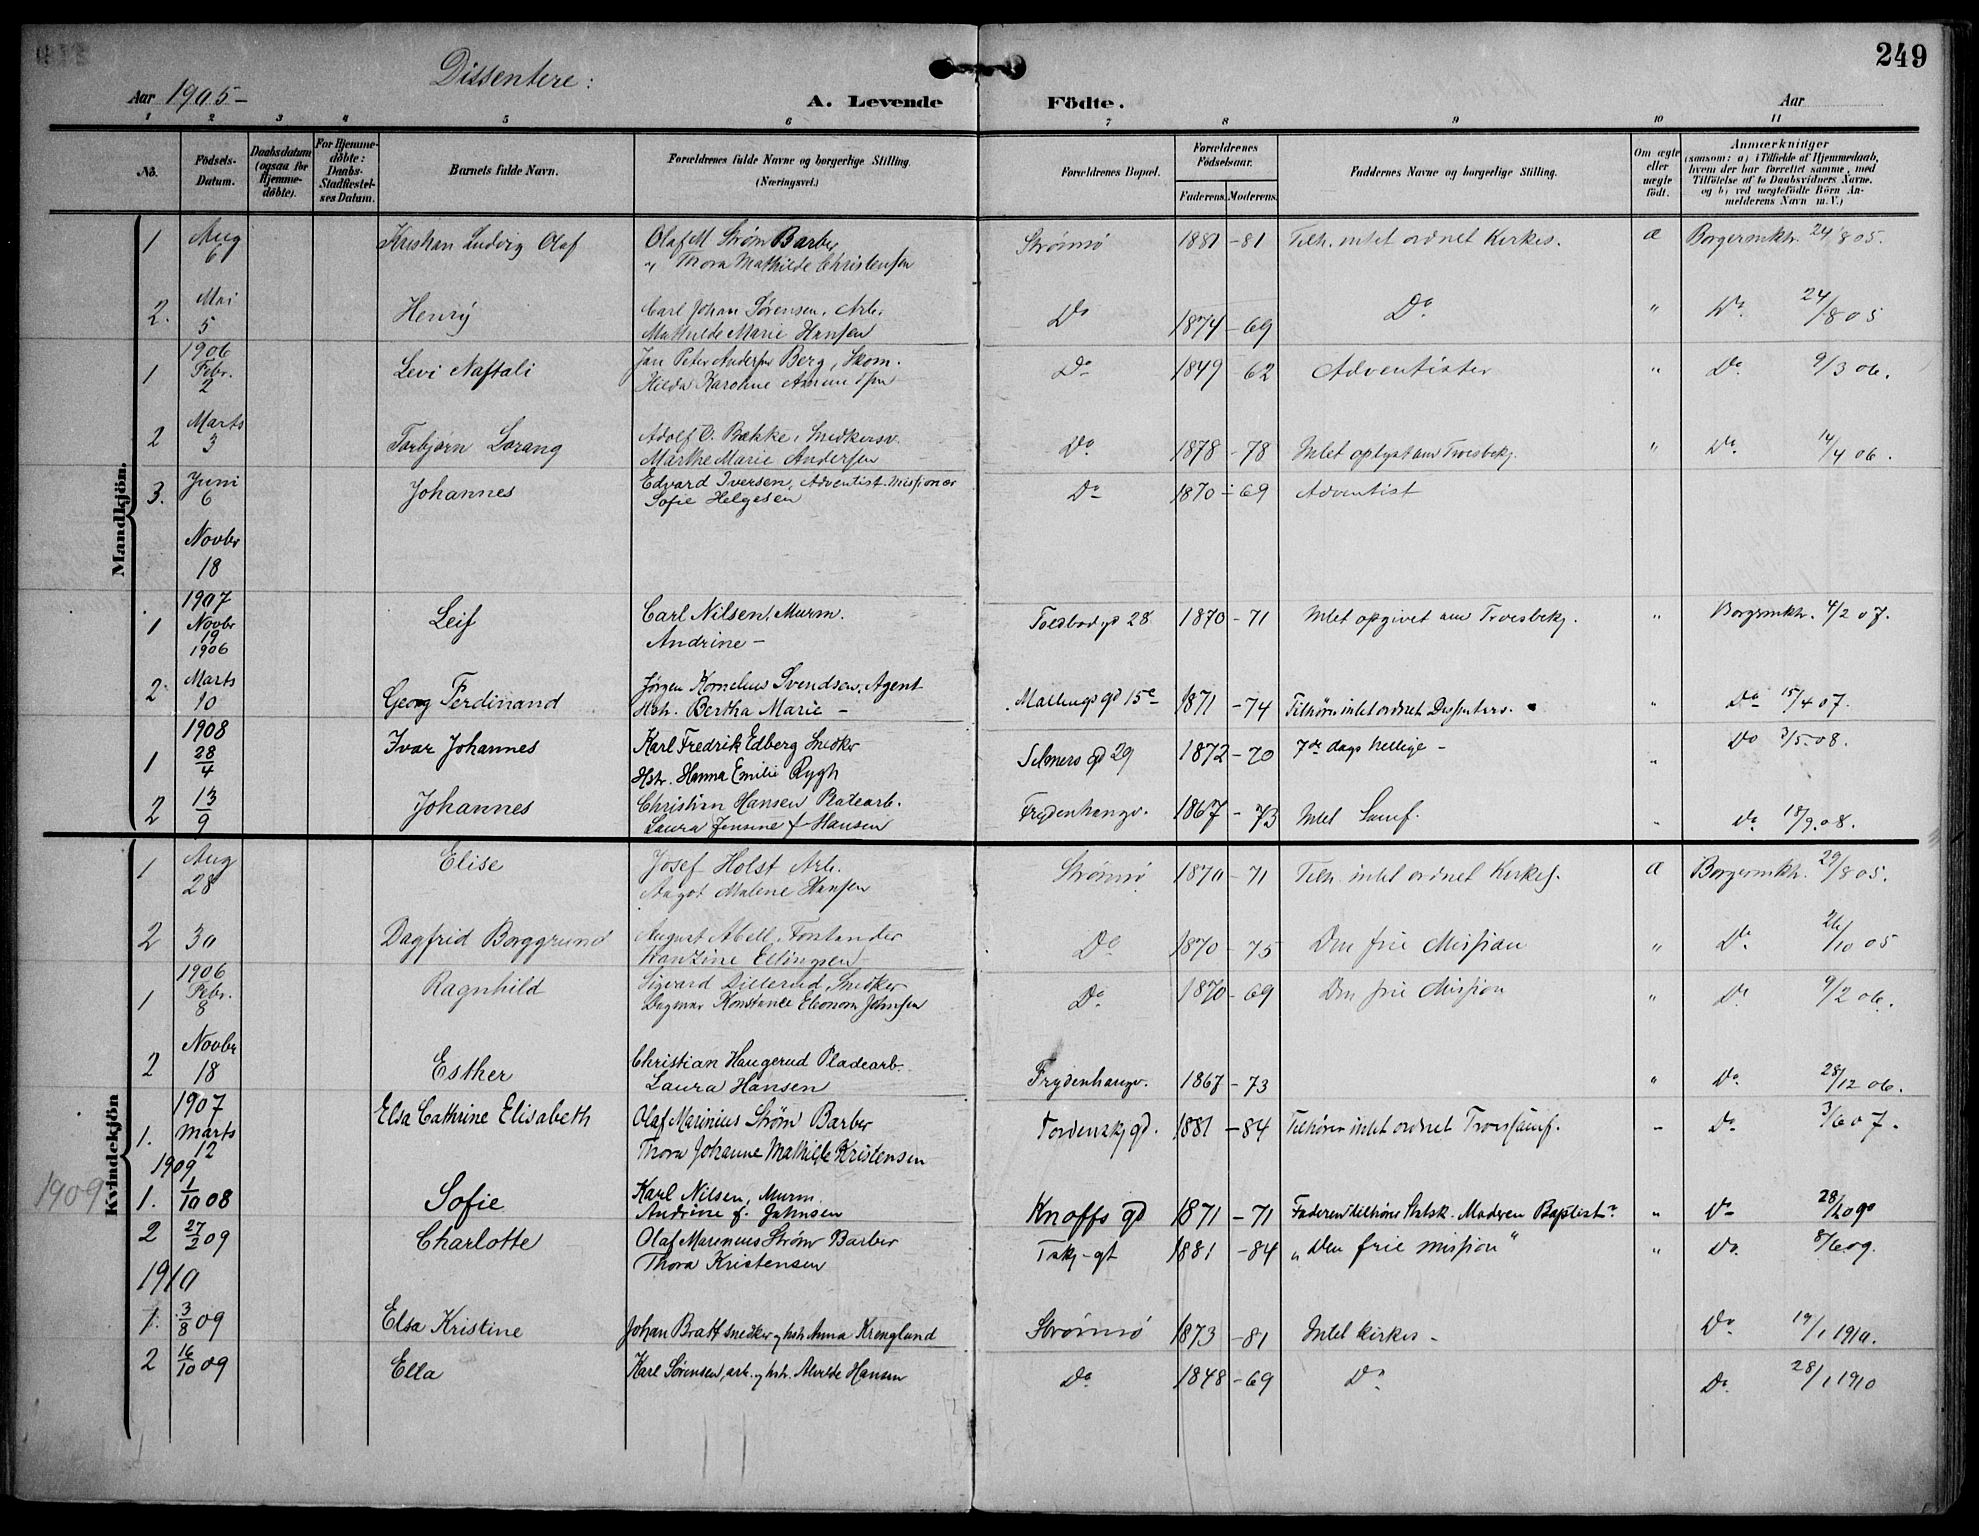 249
Dissentere:
Aar 1905-
A. Levende Födte.
Aar
1 2 3 4 5 6 7 8 9 10 11
No.
Födsels-Datum.
Daabsdatum (ogsaa for Hjemmedöbte).
For Hjemmedöbte: Daabs-Stadfestelses Datum.
Barnets fulde Navn.
Forældrenes fulde Navne og borgerlige Stilling. (Næringsvei.)
Forældrenes Bopæl.
Forældrenes Födselsaar.
Faderens. Moderens.
Faddernes Navne og borgerlige Stilling.
Om ægte eller uægte födt.
Anmærkninger (saasom: a) i Tilfælde af Hjemmedaab, hvem der har forrettet samme, med Tilföielse af to Daabsvidners Navne, og b) ved uægtefödte Börn Anmelderens Navn m. V.)
Mandkjön.
1 Aug 6 Kristian Ludvig Olaf Olaf M Strøm Barber Strømsø 1881 - 81 Tilh. intet ordnet Kirkes. Æ Borgermktr. 24/8 05.
" Thora Mathilde Christensen
2. Mai 5 Henry Carl Johan Sørensen, Arb. Do 1874 - 69 Do " Do 24/8 05
Mathilde Marie Hansen
1906
1 Febr. 2 Levi Naftali Jan Peter Andersen Berg, Skom. Do 1849 - 62 Adventister " Do 9/3 06.
Hilda Karoline
2 Marts 3 Torbjørn Lorang Adolf O. Bække, Snedkersv. Do 1878 - 78 Intet oplyst om Troesbekj. " Do 14/4 06.
Marthe Marie Andersen
3. Juni 6 Johannes Edvard Iversen, Adventist-Missionær Do 1870 - 69 Adventist
Sofie Helgesen
Novbr 18
1907
1 Novbr 19 1906 Leif Carl Nilsen, Murm. Toldbodgd 28 1870 - 71 Intet opgivet om Troesbekj. " Borgermktr. 4/2 07.
Andrine -
2. Marts 10 Georg Ferdinand Jørgen Kornelius Svendsen, Agent Mallings gd 15e 1871 - 74 Tilhører intet ordnet " Do 15/4 07.
Hstr. Bertha Marie -
1908
1 28/4 Ivar Johannes Karl Fredrik Edberg Snedker Selmers gd 29 1872 - 70 7de dags hellige - " Do 3/5 08.
Hstr. Hanna Emilie Rygh
2 13/9 Johannes Christian Hansen Platearb. Frydenhaugv. 1867 - 73 Intet Samf. " Do 18/9 08.
Laura Jensine f. Hansen
Kvindekjön
1 Aug 28 Elise Josef Holst Arb. Strømsø 1870 - 71 Tilh. intet ordnet Kirkes. Æ Borgermktr. 29/8 05.
Aagot Malene Hansen
2 30 Dagfrid Borggrund August Abell, Do 1870 - 75 Den frie Mission " Do 26/10 05
Ellingsen
1906
1 Febr. 8 Ragnhild Sigvard Dillerud, Snedker Do 1870 - 69 Den frie Mission " Do 9/2 06.
Dagmar Konstance Eleonora Johnsen
2 Novbr 18 Esther Christian Haugerud Pladearb. Frydenhaugv. 1867 - 73 " Do 28/12 06.
Laura Hansen
1907
1. Marts 12 Elsa Cathrine Elisabeth Olaf Marinius Strøm Barber Tordenskj gd. 1881 - 84 Tilhører intet ordnet Troessamf. " Do 3/6 07.
Thora Johanne Mathilde Kristensen
1909
1909
1. 1/10 08 Sofie Karl Nilsen, Murm. Knoffs gd 1871 - 71 Faderen tilhører Statsk. Moderen Baptistn " Do 28/
Andrine f. Johnsen
2 27/2 09 Charlotte Olaf Marinius Strøm Barber 1881 - 84 "Den frie mission" " Do. 8/6 09.
Thora Kristensen
1910
1. 3/8 09 Elsa Kristine Johan Bratt snedker og hstr. Anna Krenglund Strømsø 1873 - 81 Intet kirkes - Do 19/1 1910.
2 16/10 09 Ella Karl Sørensen, arb. og hstr. Alvilde Hansen Do 1848 - 69 Do Do 28/1 1910